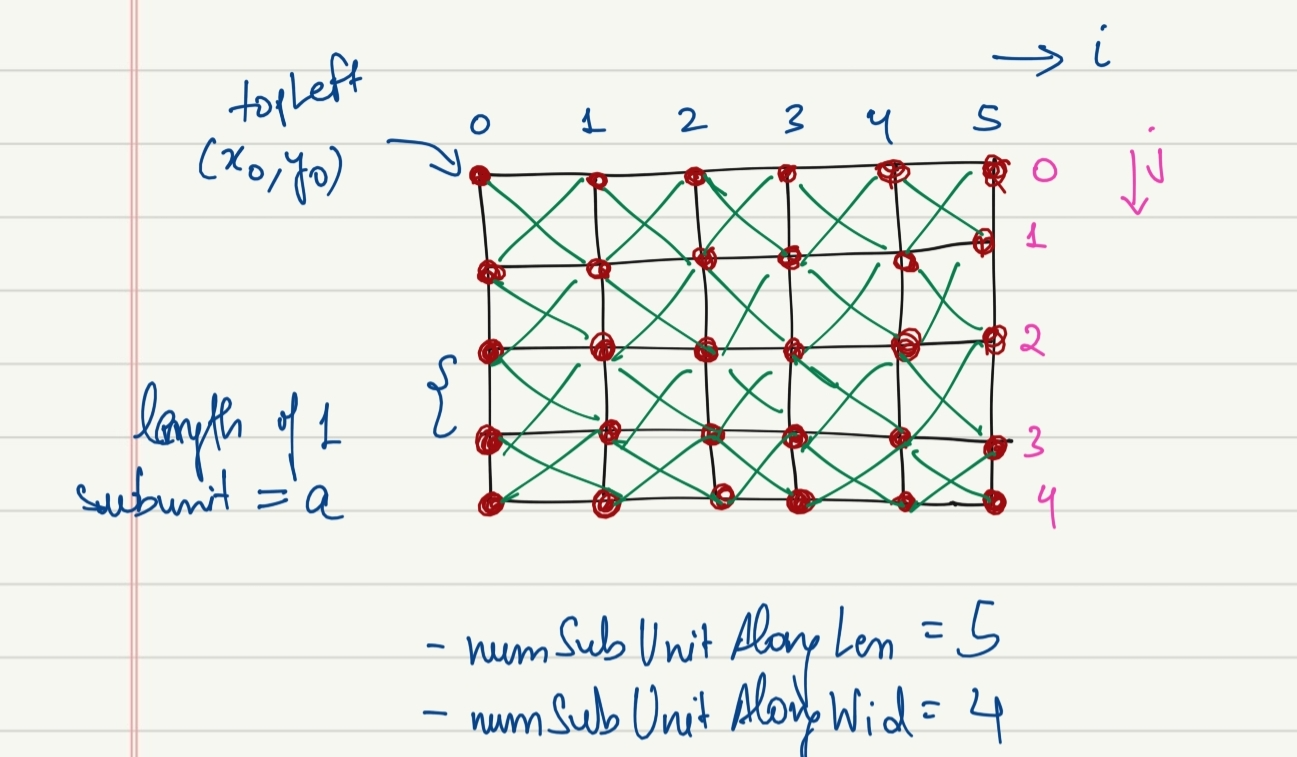 → i
topLeft
(x₀, y₀)
0 1 2 3 4 5
j
0
1
2
3
4
length of 1
subunit = a
- numSubUnitAlongLen = 5
- numSubUnitAlongWid = 4